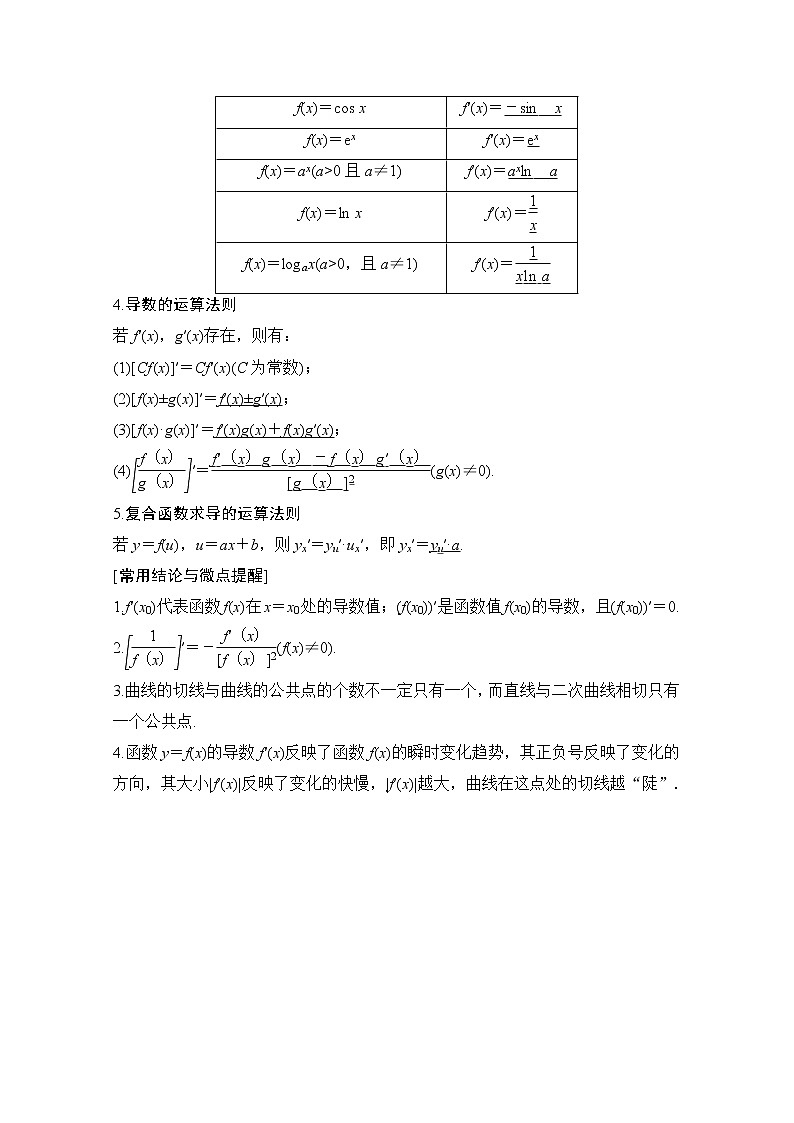 f(x)＝cos x	f′(x)＝－sin x
f(x)＝eˣ	f′(x)＝eˣ
f(x)＝aˣ(a>0 且 a≠1)	f′(x)＝aˣln a
f(x)＝ln x	f′(x)＝1/x
f(x)＝logₐx(a>0，且 a≠1)	f′(x)＝1/(xln a)
4.导数的运算法则
若 f′(x)，g′(x)存在，则有：
(1)[Cf(x)]′＝Cf′(x)(C 为常数)；
(2)[f(x)±g(x)]′＝f′(x)±g′(x)；
(3)[f(x)·g(x)]′＝f′(x)g(x)＋f(x)g′(x)；
(4)[f（x）/g（x）]′＝(f′（x）g（x）－f（x）g′（x）)/[g（x）]²(g(x)≠0).
5.复合函数求导的运算法则
若 y＝f(u)，u＝ax＋b，则 yₓ′＝yᵤ′·uₓ′，即 yₓ′＝yᵤ′·a.
[常用结论与微点提醒]
1.f′(x₀)代表函数 f(x)在 x＝x₀处的导数值；(f(x₀))′是函数值 f(x₀)的导数，且(f(x₀))′＝0.
2.[1/f（x）]′＝－f′（x）/[f（x）]²(f(x)≠0).
3.曲线的切线与曲线的公共点的个数不一定只有一个，而直线与二次曲线相切只有
一个公共点.
4.函数 y＝f(x)的导数 f′(x)反映了函数 f(x)的瞬时变化趋势，其正负号反映了变化的
方向，其大小|f′(x)|反映了变化的快慢，|f′(x)|越大，曲线在这点处的切线越“陡”.